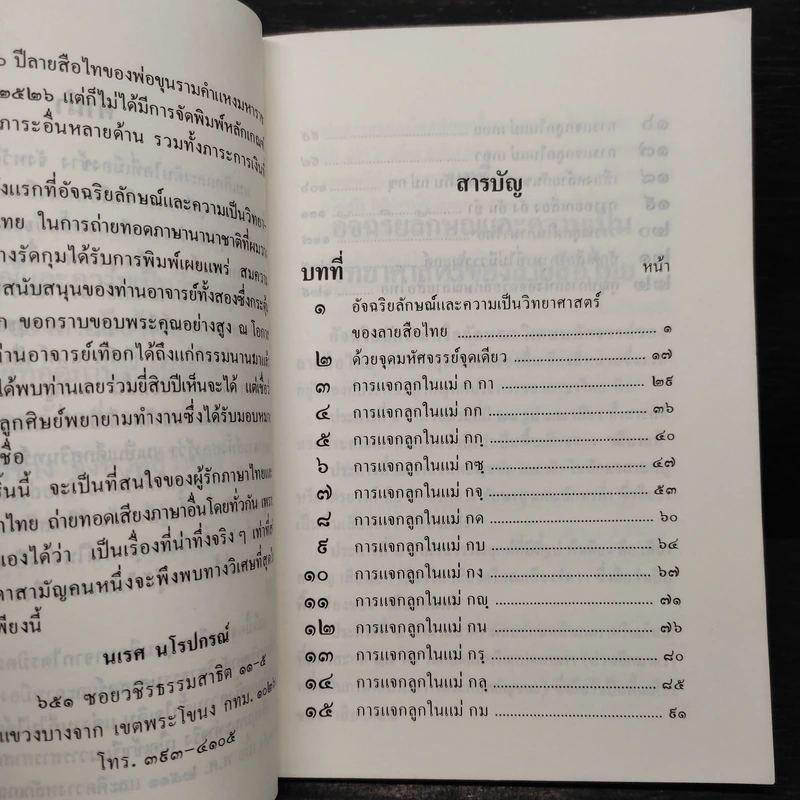 ปีลายสือไทของพ่อขุนรามคำแหงมหาราช
๒๕๒๖ แต่ก็ไม่ได้มีการจัดพิมพ์หลักเกณฑ์
ภาระอื่นหลายด้าน รวมทั้งภาระการเงินที่
แรกที่อัจฉริยลักษณ์และความเป็นวิทยา-
ไทย ในการถ่ายทอดภาษานานาชาติที่ผม
างรัดกุมได้รับการพิมพ์เผยแพร่ สมความ
สนับสนุนของท่านอาจารย์ทั้งสองซึ่งกระตุ้น
ก ขอกราบขอบพระคุณอย่างสูง ณ โอกาส
ท่านอาจารย์เทือกได้ถึงแก่กรรมนานมาแล้ว
ได้พบท่านเลยร่วมยี่สิบปีเห็นจะได้ แต่เชื่อว่า
ลูกศิษย์พยายามทำงานซึ่งได้รับมอบหมาย
ชื่อ
นี้ จะเป็นที่สนใจของผู้รักภาษาไทยและ
าไทย ถ่ายทอดเสียงภาษาอื่นโดยทั่วกัน เพราะ
เองได้ว่า เป็นเรื่องที่น่าทึ่งจริง ๆ เท่าที่
าสามัญคนหนึ่งจะพึงพบทางวิเศษที่สุด
เพียงนี้
นเรศ นโรปกรณ์
๖๕๑ ซอยวชิรธรรมสาธิต ๑๑-๕
แขวงบางจาก เขตพระโขนง กทม. ๑๐๒๖
โทร. ๓๙๓-๔๑๐๕
สารบัญ
บทที่ หน้า
๑ อัจฉริยลักษณ์และความเป็นวิทยาศาสตร์
ของลายสือไทย ๑
๒ ด้วยจุดมหัศจรรย์จุดเดียว ๑๗
๓ การแจกลูกในแม่ ก กา ๒๙
๔ การแจกลูกในแม่ กก ๓๖
๕ การแจกลูกในแม่ กกฺ ๔๐
๖ การแจกลูกในแม่ กซฺ ๔๗
๗ การแจกลูกในแม่ กจฺ ๕๓
๘ การแจกลูกในแม่ กด ๖๐
๙ การแจกลูกในแม่ กบ ๖๔
๑๐ การแจกลูกในแม่ กง ๖๗
๑๑ การแจกลูกในแม่ กญฺ ๗๑
๑๒ การแจกลูกในแม่ กน ๗๖
๑๓ การแจกลูกในแม่ กรฺ ๘๐
๑๔ การแจกลูกในแม่ กลฺ ๘๕
๑๕ การแจกลูกในแม่ กม ๙๑